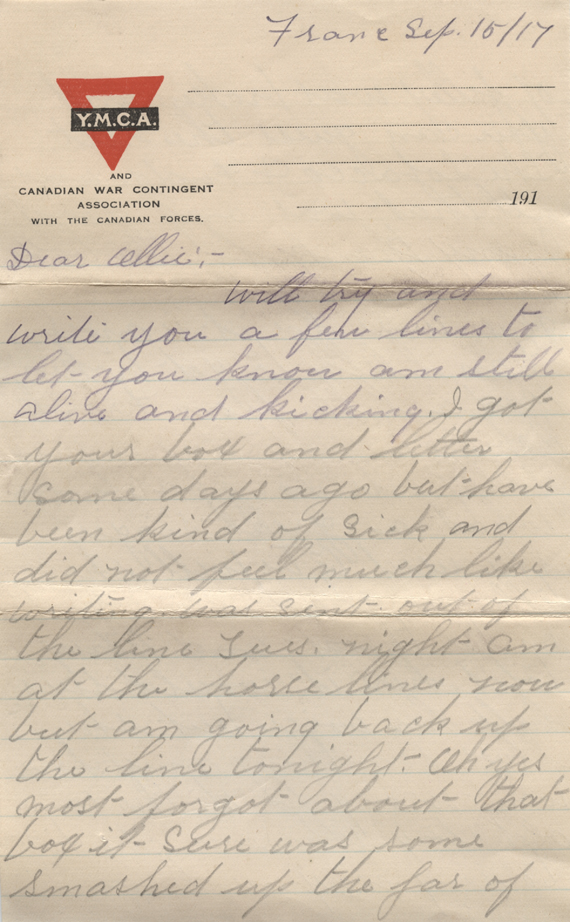 Franc Sep. 15/17
Y.M.C.A.
AND
CANADIAN WAR CONTINGENT
ASSOCIATION
WITH THE CANADIAN FORCES.
191
Dear Ollie;-
will try and
write you a few lines to
let you know am still
alive and kicking. I got
your box and letter
some days ago but have
been kind of sick and
did not feel much like
writing was sent out of
the line Tues. night am
at the horse lines now
but am going back up
the line tonight. Oh yes
most forgot about that
box it Sure was some
smashed up the jar of